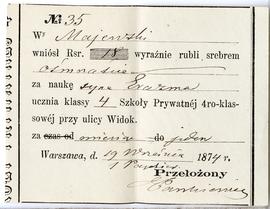 № 35
Wy Majewski
wniósł Rsr. 18 wyraźnie rubli srebrem
ośmnaście
za naukę syna Erazma
ucznia klassy 4 Szkoły Prywatnéj 4ro-klas-
sowéj przy ulicy Widok.
za czas od miesiąc do jeden
Warszawa, d. 19 Września 1874 r.
Przełożony
Pankiewicz